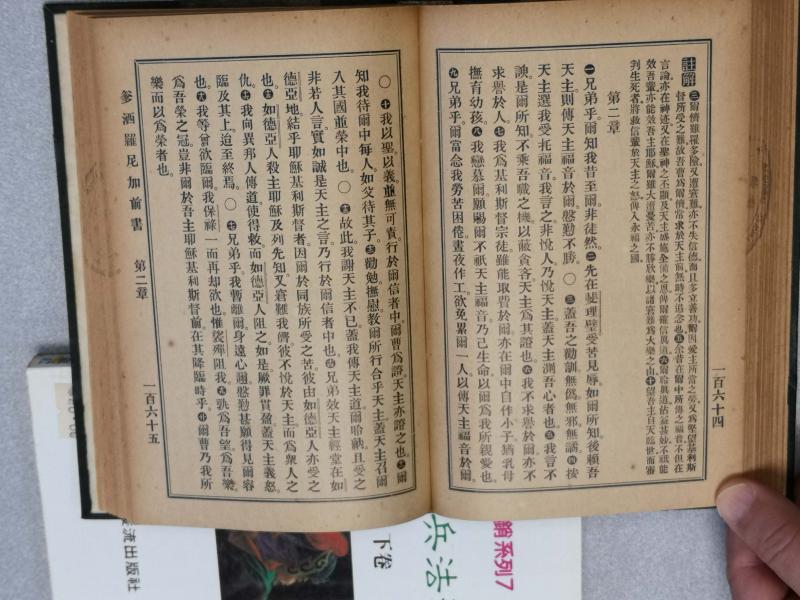 註解 三爾儕雖罹多險又遭窘難亦不失信德而且多立善功爾因愛主所當之勞又爲堅望基利斯
督所受之難故吾曹爲爾儕常求於天主前無時不追念也五余昔在爾中所傳之福音不但在
言論亦在神迹又在聖神之丕顯及天主盛施全備之恩俾爾確信真道六爾聆真道佑益甚妙不祇能
效吾輩亦能效吾主耶穌爾雖大遭憂苦亦不勝欣樂以諸窘難爲大樂之由十望吾主自天臨世而審
判生死者將救信輩於天主之怒俾入永福之國
第二章
一兄弟乎爾知我昔至爾非徒然。二先在斐理璧受苦見辱如爾所知後賴吾
天主則傳天主福音於爾慇懃不勝。〇三蓋吾之勸訓無僞無邪無譎。四按
天主選我受托福音我言之非悅人乃悅天主蓋天主測吾心者也五我言不
諛是爾所知不乘吾職之機以蔽貪吝天主爲其證也。六我不求譽於爾亦不
求譽於人。七我爲基利斯督宗徒雖能取貲於爾亦在爾中自作小子猶乳母
撫育幼孩。八我戀慕爾願賜爾不祇天主福音乃己生命以爾爲我所親愛也。
九兄弟乎爾當念我勞苦困倦晝夜作工欲免累爾一人以傳天主福音於爾。
一百六十四
〇十我以聖以義並無可責行於爾信者中爾曹爲證天主亦證之也。十一爾
知我待爾中每人如父待其子。十二勸勉撫慰教爾所行合乎天主蓋天主召爾
入其國並榮中也。〇十三故此我謝天主不已蓋我傳天主道爾聆納且受之
非若人言實如誠是天主之言乃行於爾信者中也十四兄弟效天主經堂在如
德亞地結乎耶穌基利斯督者因爾於同族所受之苦彼由如德亞人亦受之
也。十五如德亞人殺主耶穌及列先知又窘難我儕彼不悅於天主而爲衆人之
仇。十六我向異邦人傳道使得救而如德亞人阻之如是厥罪貫盈蓋天主義怒
臨及其上迨至終焉。〇十七兄弟乎我暫離爾身遠心邇慇懃甚願得見爾容
也。十八我等曾欲臨爾我保祿一而再却欲也惟裟殫阻我。十九孰爲吾望爲吾樂
爲吾榮之冠豈非爾於吾主耶穌基利斯督前在其降臨時乎。二十爾曹乃我所
樂而以爲榮者也。
爹洒羅尼加前書 第二章
一百六十五
銷系列7
兵法
下卷
流出版社